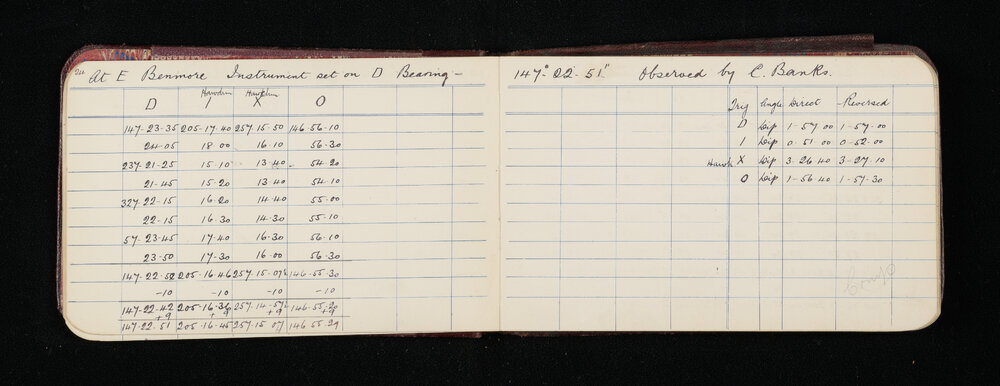 24
At E Benmore Instrument set on D Bearing - 147° 22' 51" Observed by C. Banks.
D 1 X O
147-23-35 205-17-40 257-15-50 146-56-10
24-05 18 00 16-10 56-30
237-21-25 15-10 13-40 54-20
21-45 15-20 13 40 54-10
327 22-15 16-20 14-40 55-00
22-15 16-30 14-30 55-10
57-23-45 17-40 16-30 56-10
23-50 17-30 16-00 56-30
147-22-52 205-16-46 257-15-07½ 146-55-30
-10 -10 -10 -10
147-22-42 205-16-36 257-14-57½ 146-55-20
+9 +9 +9 +9
147-22-51 205-16-45 257-15 07 146 55-29
Trig Angle Direct Reversed
D Dip 1-57 00 1-57-00
1 Dip 0-51 00 0-52-00
Hawk X Dip 3-26 40 3-27-10
O Dip 1-56-40 1-57-30